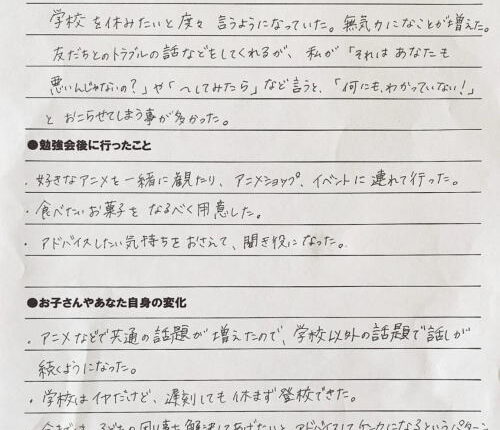 学校を休みたいと度々言うようになっていた。無気力になることが増えた。
友だちとのトラブルの話などをしてくれるが、私が「それはあなたも
悪いんじゃないの?」や「〜してみたら」など言うと、「何にも、わかっていない!」
とおこらせてしまう事が多かった。
●勉強会後に行ったこと
・好きなアニメを一緒に観たり、アニメショップ、イベントに連れて行った。
・食べたいお菓子をなるべく用意した。
・アドバイスしたい気持ちをおさえて、聞き役になった。
●お子さんやあなた自身の変化
・アニメなどで共通の話題が増えたので、学校以外の話題で話しが
続くようになった。
・学校はイヤだけど、遅刻しても休まず登校できた。
子どもの困り事を解決してあげたいとアドバイスしてケンカになるというパターン